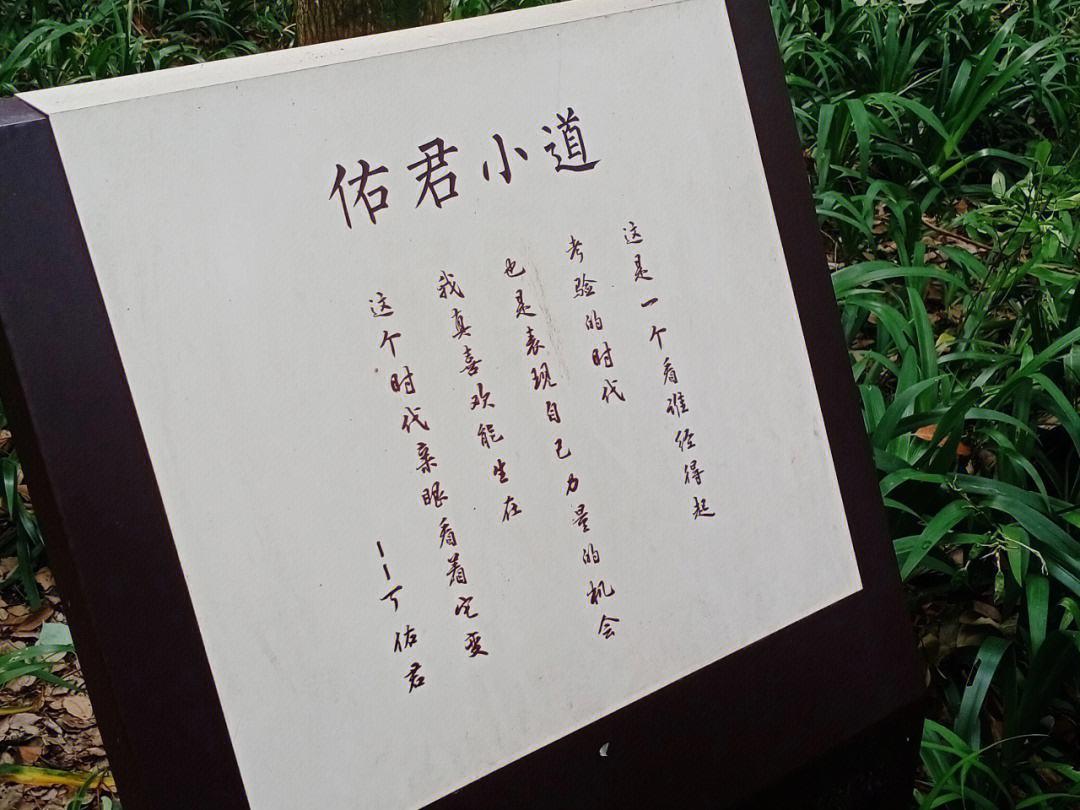 佑君小道
这是一个看谁经得起
考验的时代
也是表现自己力量的机会
我真喜欢能生在
这个时代亲眼看着它变
——丁佑君